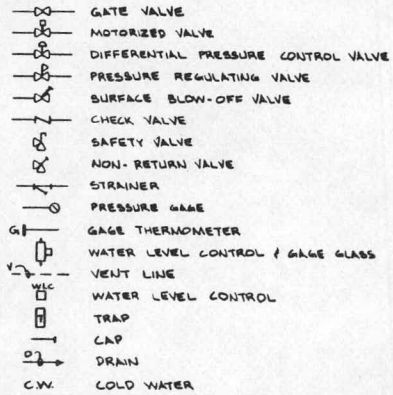 GATE VALVE
MOTORIZED VALVE
DIFFERENTIAL PRESSURE CONTROL VALVE
PRESSURE REGULATING VALVE
SURFACE BLOW-OFF VALVE
CHECK VALVE
SAFETY VALVE
NON-RETURN VALVE
STRAINER
PRESSURE GAGE
G GAGE THERMOMETER
WATER LEVEL CONTROL & GAGE GLASS
V VENT LINE
WLC WATER LEVEL CONTROL
T TRAP
CAP
D DRAIN
C.W. COLD WATER